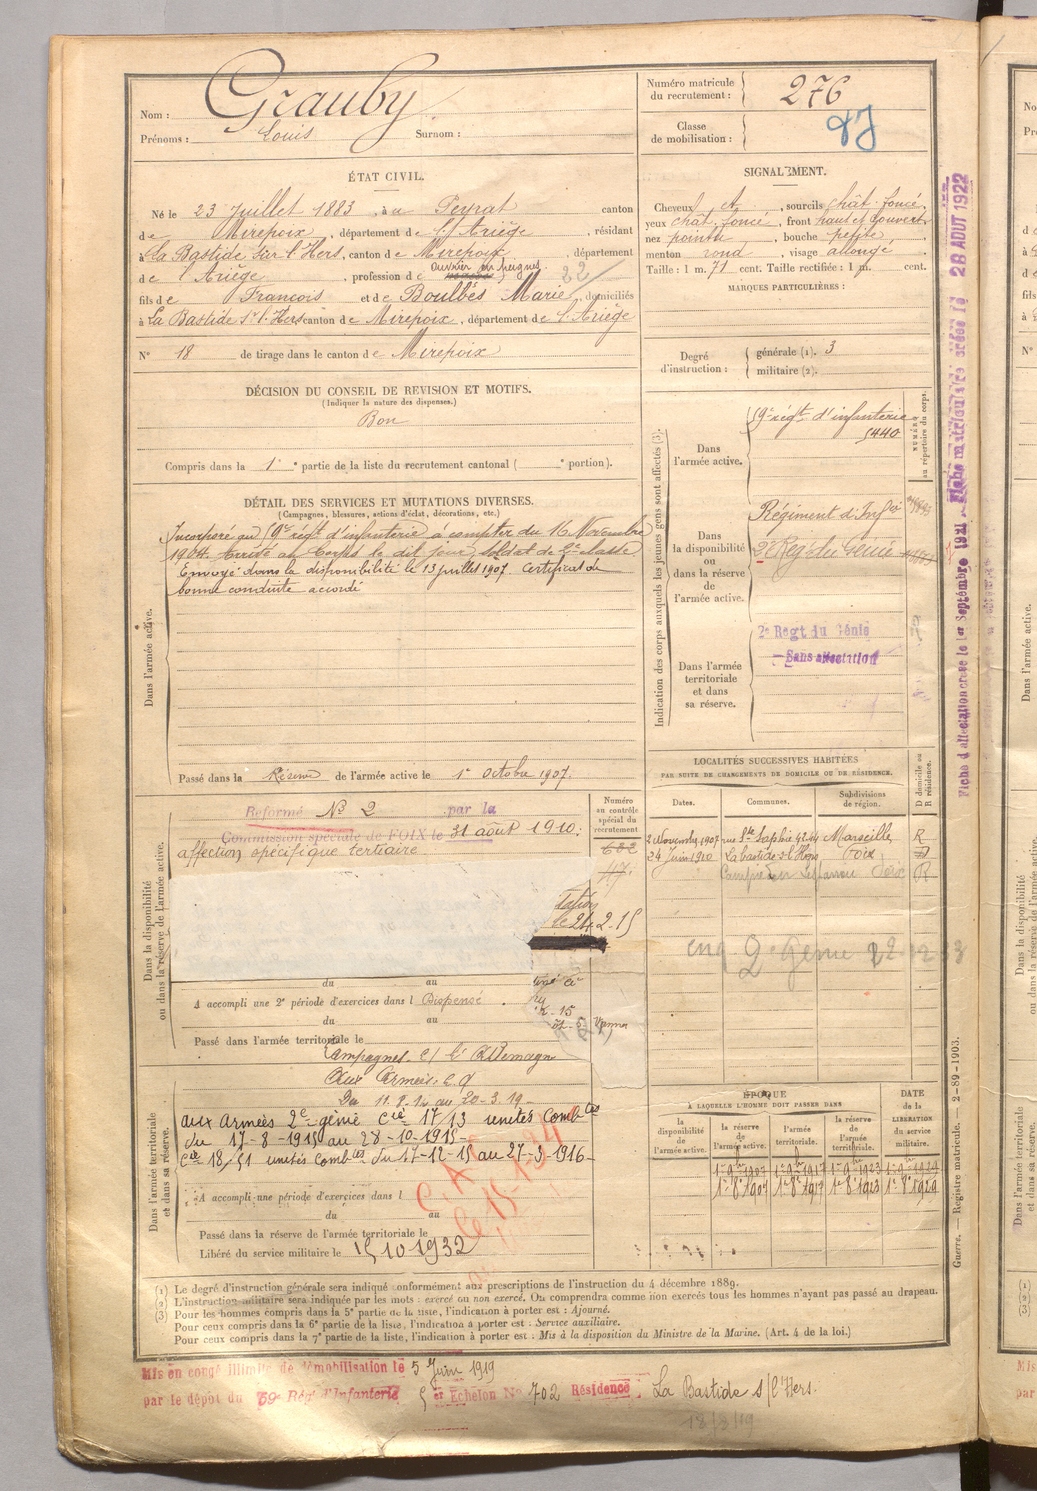 Nom : Grauby
Prénoms : Louis Surnom :
Numéro matricule du recrutement : 276
Classe de mobilisation :
ÉTAT CIVIL.
Né le 23 Juillet 1883, à Peyrat canton
de Mirepoix, département de l'Ariège, résidant
à La Bastide sur l'Hers, canton de Mirepoix, département
de l'Ariège, profession de ouvrier en peignes. 22
fils de François et de Boulbès Marie, domiciliés
à La Bastide sr l'Hers canton de Mirepoix, département de l'Ariège
N° 18 de tirage dans le canton de Mirepoix
SIGNALEMENT.
Cheveux et, sourcils chât. foncé,
yeux chât. foncé, front haut et découvert
nez pointu, bouche petite,
menton rond, visage allongé
Taille : 1 m. 71 cent. Taille rectifiée : 1 m. cent.
MARQUES PARTICULIÈRES :
Degré d'instruction : générale (1). 3
militaire (2).
DÉCISION DU CONSEIL DE REVISION ET MOTIFS.
(Indiquer la nature des dispenses.)
Bon
Compris dans la 1e partie de la liste du recrutement cantonal ( e portion).
DÉTAIL DES SERVICES ET MUTATIONS DIVERSES.
(Campagnes, blessures, actions d'éclat, décorations, etc.)
Incorporé au 59e régt d'infanterie à compter du 16 Novembre
1904. Arrivé au Corps le dit jour, soldat de 2e classe
Envoyé dans la disponibilité le 13 juillet 1907. Certificat de
bonne conduite accordé
Dans l'armée active.
Passé dans la Réserve de l'armée active le 1er Octobre 1907.
Indication des corps auxquels les jeunes gens sont affectés (3).
NUMÉRO au répertoire du corps.
Dans l'armée active.
59e régt d'infanterie
5440
Dans la disponibilité ou dans la réserve de l'armée active.
Régiment d'Infie
2e Rég. du Génie
Dans l'armée territoriale et dans sa réserve.
2e Régt du Génie
Sans affectation
Fiche d'affectation créée le 1er Septembre 1921
Fiche matriculaire créée le 28 AOUT 1922
Dans la disponibilité ou dans la réserve de l'armée active.
Réformé N° 2 par la
Commission spéciale de FOIX le 31 août 1910.
affection spécifique tertiaire
Numéro au contrôle spécial du recrutement
632
le 24-2-15
du au
A accompli une 2e période d'exercices dans l Dispensé.
du au
Passé dans l'armée territoriale le
Campagnes. C/ l'Allemagne
Aux Armées : C.D
Du 11.8.14 au 20-3.19
Dans l'armée territoriale et dans sa réserve.
aux armées 2e génie Cie 17/13 unités Combtes
du 17-8-1915 au 28-10-1915
Cie 18/51 unités Combtes du 17-12-15 au 27-3-1916
A accompli une période d'exercices dans l
du au
Passé dans la réserve de l'armée territoriale le
Libéré du service militaire le 15 10 1932
LOCALITÉS SUCCESSIVES HABITÉES
PAR SUITE DE CHANGEMENTS DE DOMICILE OU DE RÉSIDENCE.
Dates. Communes. Subdivisions de région. D domicile ou R résidence.
2 Novembre 1907 rue Ste Sophie 42-64 Marseille R
24 Juin 1910 La bastide s-l'Hers Foix D
R
2e Génie
ÉPOQUE
À LAQUELLE L'HOMME DOIT PASSER DANS
DATE de la LIBÉRATION du service militaire.
la disponibilité de l'armée active. la réserve de l'armée active. l'armée territoriale. la réserve de l'armée territoriale.
1er 9bre 1907 1er 9bre 1917 1er 9bre 1923 1er 9bre 1929
1er 8bre 1907 1er 8bre 1917 1er 8bre 1923 1er 8bre 1929
Guerre. — Registre matricule. — 2-89-1903.
(1) Le degré d'instruction générale sera indiqué conformément aux prescriptions de l'instruction du 4 décembre 1889.
(2) L'instruction militaire sera indiquée par les mots : exercé ou non exercé. On comprendra comme non exercés tous les hommes n'ayant pas passé au drapeau.
(3) Pour les hommes compris dans la 5e partie de la liste, l'indication à porter est : Ajourné.
Pour ceux compris dans la 6e partie de la liste, l'indication à porter est : Service auxiliaire.
Pour ceux compris dans la 7e partie de la liste, l'indication à porter est : Mis à la disposition du Ministre de la Marine. (Art. 4 de la loi.)
Mis en congé illimité de démobilisation le 5 Juin 1919
par le dépôt du 59e Rég. d'Infanterie 5er Echelon N° 702 Résidence La Bastide s/l'Hers.
18/3/19